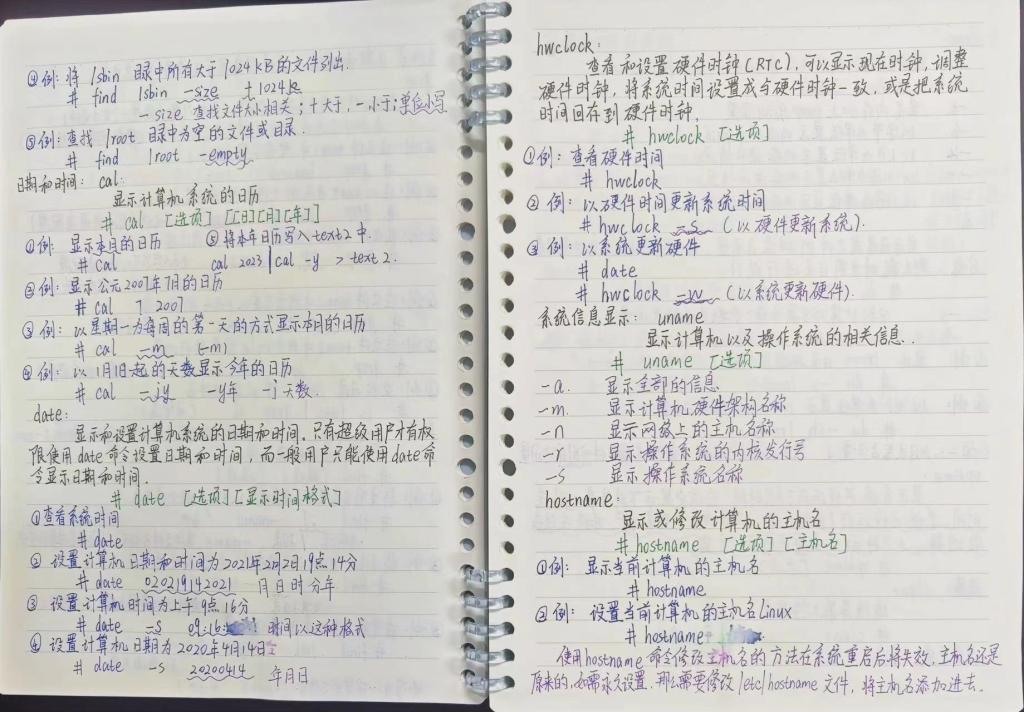 ④例:将 /sbin 目录中所有大于1024KB的文件列出.
# find /sbin -size +1024k
-size 查找文件大小相关;+大于,-小于;单位小写
⑤例:查找 /root 目录中为空的文件或目录.
# find /root -empty
日期和时间: cal:
显示计算机系统的日历
# cal [选项] [[日][月][年]]
①例:显示本月的日历 ⑤将本年日历写入text2中.
# cal cal 2023 | cal -y > text2.
②例:显示公元2007年7月的日历
# cal 7 2007
③例:以星期一为每周的第一天的方式显示本月的日历
# cal -m (-m)
④例:以1月1日起的天数显示今年的日历
# cal -jy -y年 -j天数.
date:
显示和设置计算机系统的日期和时间.只有超级用户才有权
限使用date命令设置日期和时间,而一般用户只能使用date命
令显示日期和时间.
# date [选项][显示时间格式]
①查看系统时间
# date
②设置计算机日期和时间为2021年2月2日19点14分
# date 020219142021 月日时分年
③设置计算机时间为上午9点16分
# date -s 09:16: 时间以这种格式
④设置计算机日期为2020年4月14日
# date -s 20200414 年月日
hwclock:
查看和设置硬件时钟(RTC),可以显示现在时钟,调整
硬件时钟,将系统时间设置成与硬件时钟一致,或是把系统
时间回存到硬件时钟.
# hwclock [选项]
①例:查看硬件时间
# hwclock
②例:以硬件时间更新系统时间
# hwclock -s (以硬件更新系统).
③例:以系统更新硬件
# date
# hwclock -w (以系统更新硬件).
系统信息显示: uname
显示计算机以及操作系统的相关信息.
# uname [选项]
-a. 显示全部的信息
-m. 显示计算机硬件架构名称
-n 显示网络上的主机名称
-r 显示操作系统的内核发行号
-s 显示操作系统名称
hostname:
显示或修改计算机的主机名
# hostname [选项] [主机名]
①例:显示当前计算机的主机名
# hostname
②例:设置当前计算机的主机名Linux
# hostname
使用hostname命令修改主机名的方法在系统重启后将失效,主机名还是
原来的,如需永久设置,那么需要修改/etc/hostname文件,将主机名添加进去.